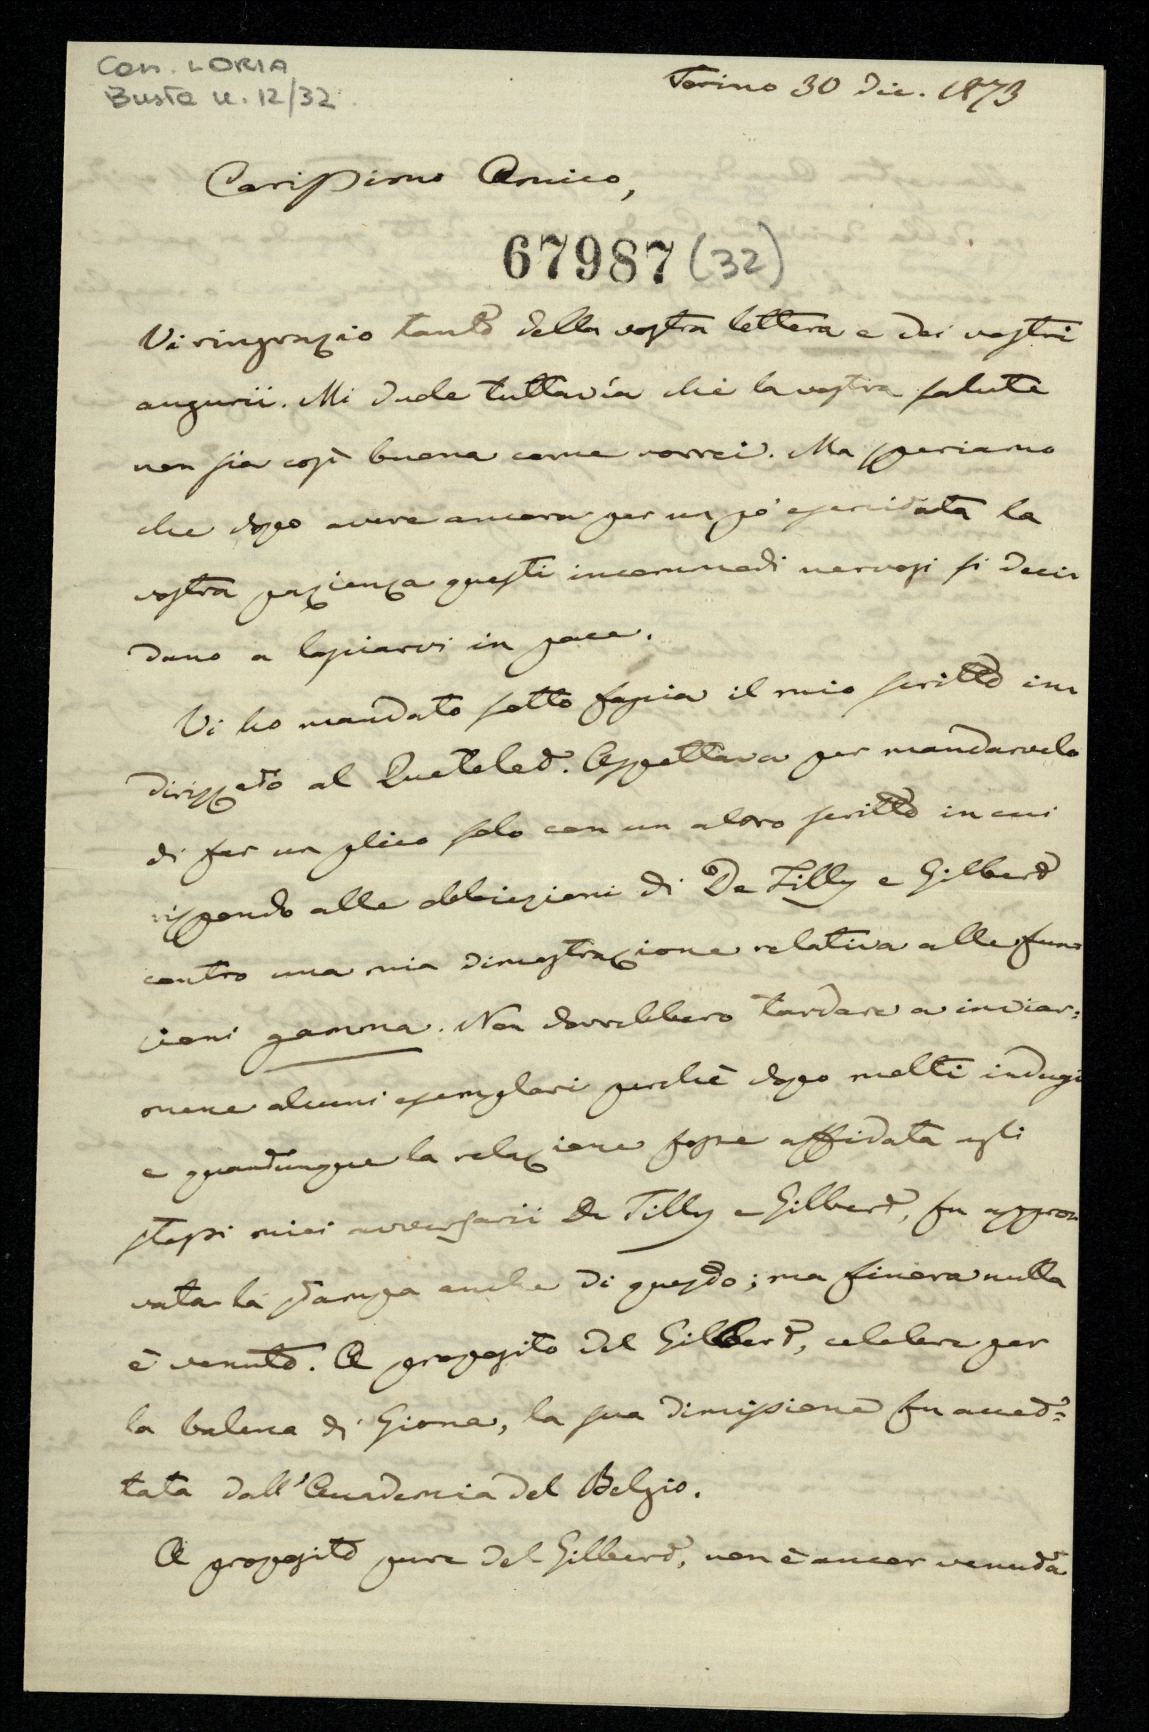 Con. LORIA
Busta n. 12/32
Torino 30 Dic. 1873
Carissimo Amico,
67987 (32)
Vi ringrazio tanto della vostra lettera e dei vostri
augurii. Mi duole tuttavia che la vostra salute
non sia così buona come vorrei. Ma speriamo
che dopo avere ancora per un po' esercitata la
vostra pazienza questi incommodi nervosi si deci
dano a lasciarvi in pace.
Vi ho mandato sotto fascia il mio scritto in
dirizzato al Quetelet. Aspettava per mandarvelo
di far un plico solo con un altro scritto in cui
rispondo alle obbiezioni di De Tilly e Gilbert
contro una mia dimostrazione relativa alle fun
zioni gamma. Non dovrebbero tardare a inviar=
mene alcuni esemplari perchè dopo molti indugi
e quantunque la relazione fosse affidata agli
stessi miei avversarii De Tilly e Gilbert, fu appro
vata la stampa anche di questo; ma finora nulla
è venuto. A proposito del Gilbert, celebre per
la balena di Giona, la sua dimissione fu accet=
tata dall'Accademia del Belgio.
A proposito pure del Gilbert, non è ancor venuta